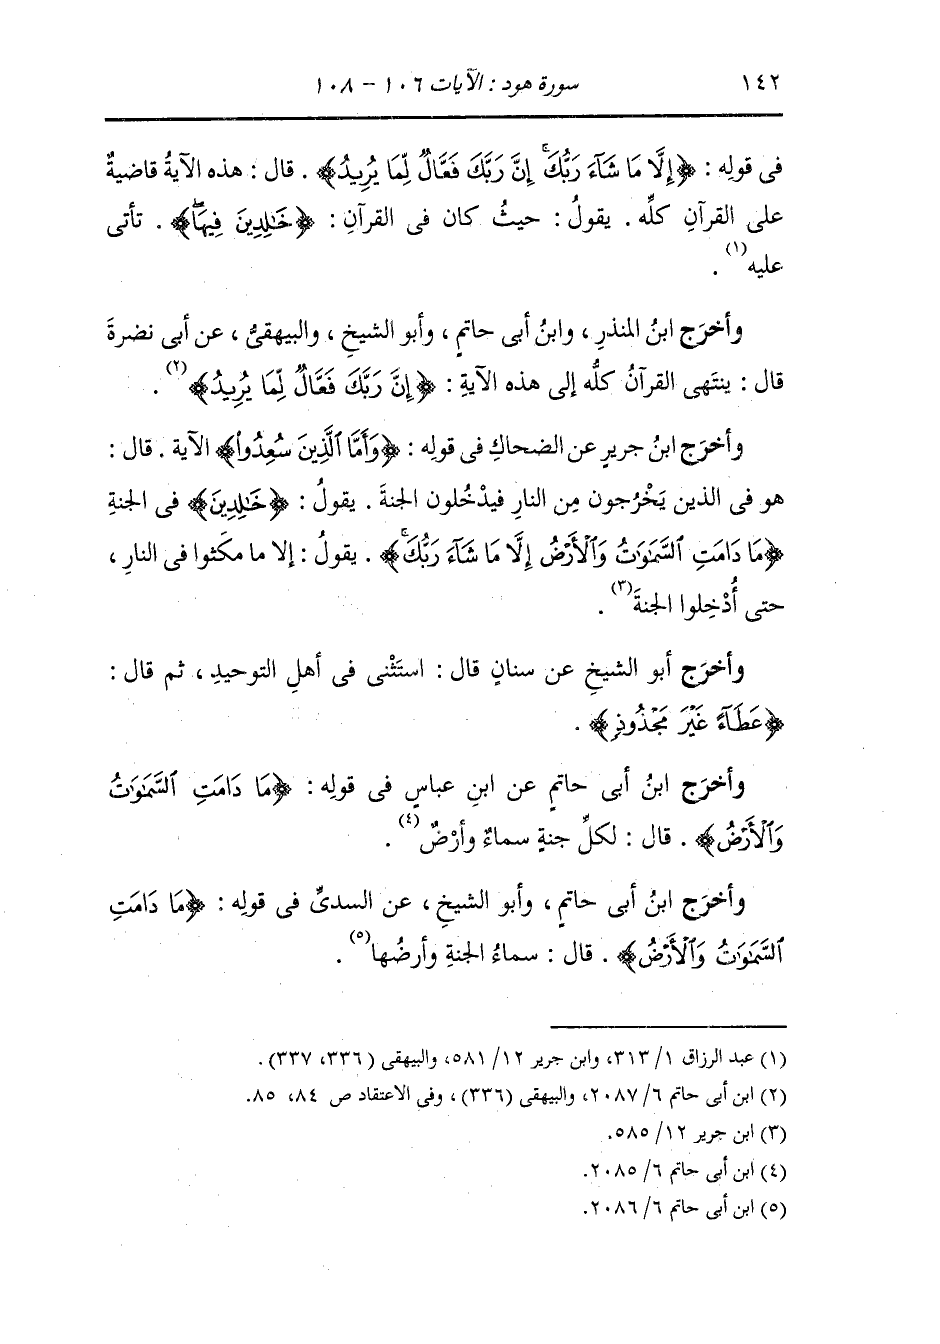 ١٤٢ سورة هود : الآيات ١٠٦ – ١٠٨
فى قولِه : ﴿إِلَّا مَا شَآءَ رَبُّكَۚ إِنَّ رَبَّكَ فَعَّالٌ لِّمَا يُرِيدُ﴾ . قال : هذه الآيةُ قاضيةٌ
على القرآنِ كلِّه . يقولُ : حيثُ كان فى القرآنِ : ﴿خَٰلِدِينَ فِيهَاۖ﴾ . تأتى
عليه(١) .
وأخرَج ابنُ المنذرِ ، وابنُ أبى حاتمٍ ، وأبو الشيخِ ، والبيهقىُّ ، عن أبى نضرةَ
قال : ينتَهى القرآنُ كلُّه إلى هذه الآيةِ : ﴿إِنَّ رَبَّكَ فَعَّالٌ لِّمَا يُرِيدُ﴾(٢) .
وأخرَج ابنُ جريرٍ عن الضحاكِ فى قولِه : ﴿وَأَمَّا ٱلَّذِينَ سُعِدُواْ﴾ الآية . قال :
هو فى الذين يَخْرُجون مِن النارِ فيدْخُلون الجنةَ . يقولُ : ﴿خَٰلِدِينَ﴾ فى الجنةِ
﴿مَا دَامَتِ ٱلسَّمَٰوَٰتُ وَٱلْأَرْضُ إِلَّا مَا شَآءَ رَبُّكَۚ﴾ . يقولُ : إلا ما مكَثوا فى النارِ ،
حتى أُدْخِلوا الجنةَ(٣) .
وأخرَج أبو الشيخِ عن سنانٍ قال : استَثْنى فى أهلِ التوحيدِ ، ثم قال :
﴿عَطَآءً غَيْرَ مَجْذُوذٍ﴾ .
وأخرَج ابنُ أبى حاتمٍ عن ابنِ عباسٍ فى قولِه : ﴿مَا دَامَتِ ٱلسَّمَٰوَٰتُ
وَٱلْأَرْضُ﴾ . قال : لكلِّ جنةٍ سماءٌ وأرْضٌ(٤) .
وأخرَج ابنُ أبى حاتمٍ ، وأبو الشيخِ ، عن السدىِّ فى قولِه : ﴿مَا دَامَتِ
ٱلسَّمَٰوَٰتُ وَٱلْأَرْضُ﴾ . قال : سماءُ الجنةِ وأرضُها(٥) .
(١) عبد الرزاق ١/ ٣١٣، وابن جرير ١٢/ ٥٨١، والبيهقى (٣٣٦، ٣٣٧).
(٢) ابن أبى حاتم ٦/ ٢٠٨٧، والبيهقى (٣٣٦) ، وفى الاعتقاد ص ٨٤، ٨٥.
(٣) ابن جرير ١٢/ ٥٨٥.
(٤) ابن أبى حاتم ٦/ ٢٠٨٥.
(٥) ابن أبى حاتم ٦/ ٢٠٨٦.